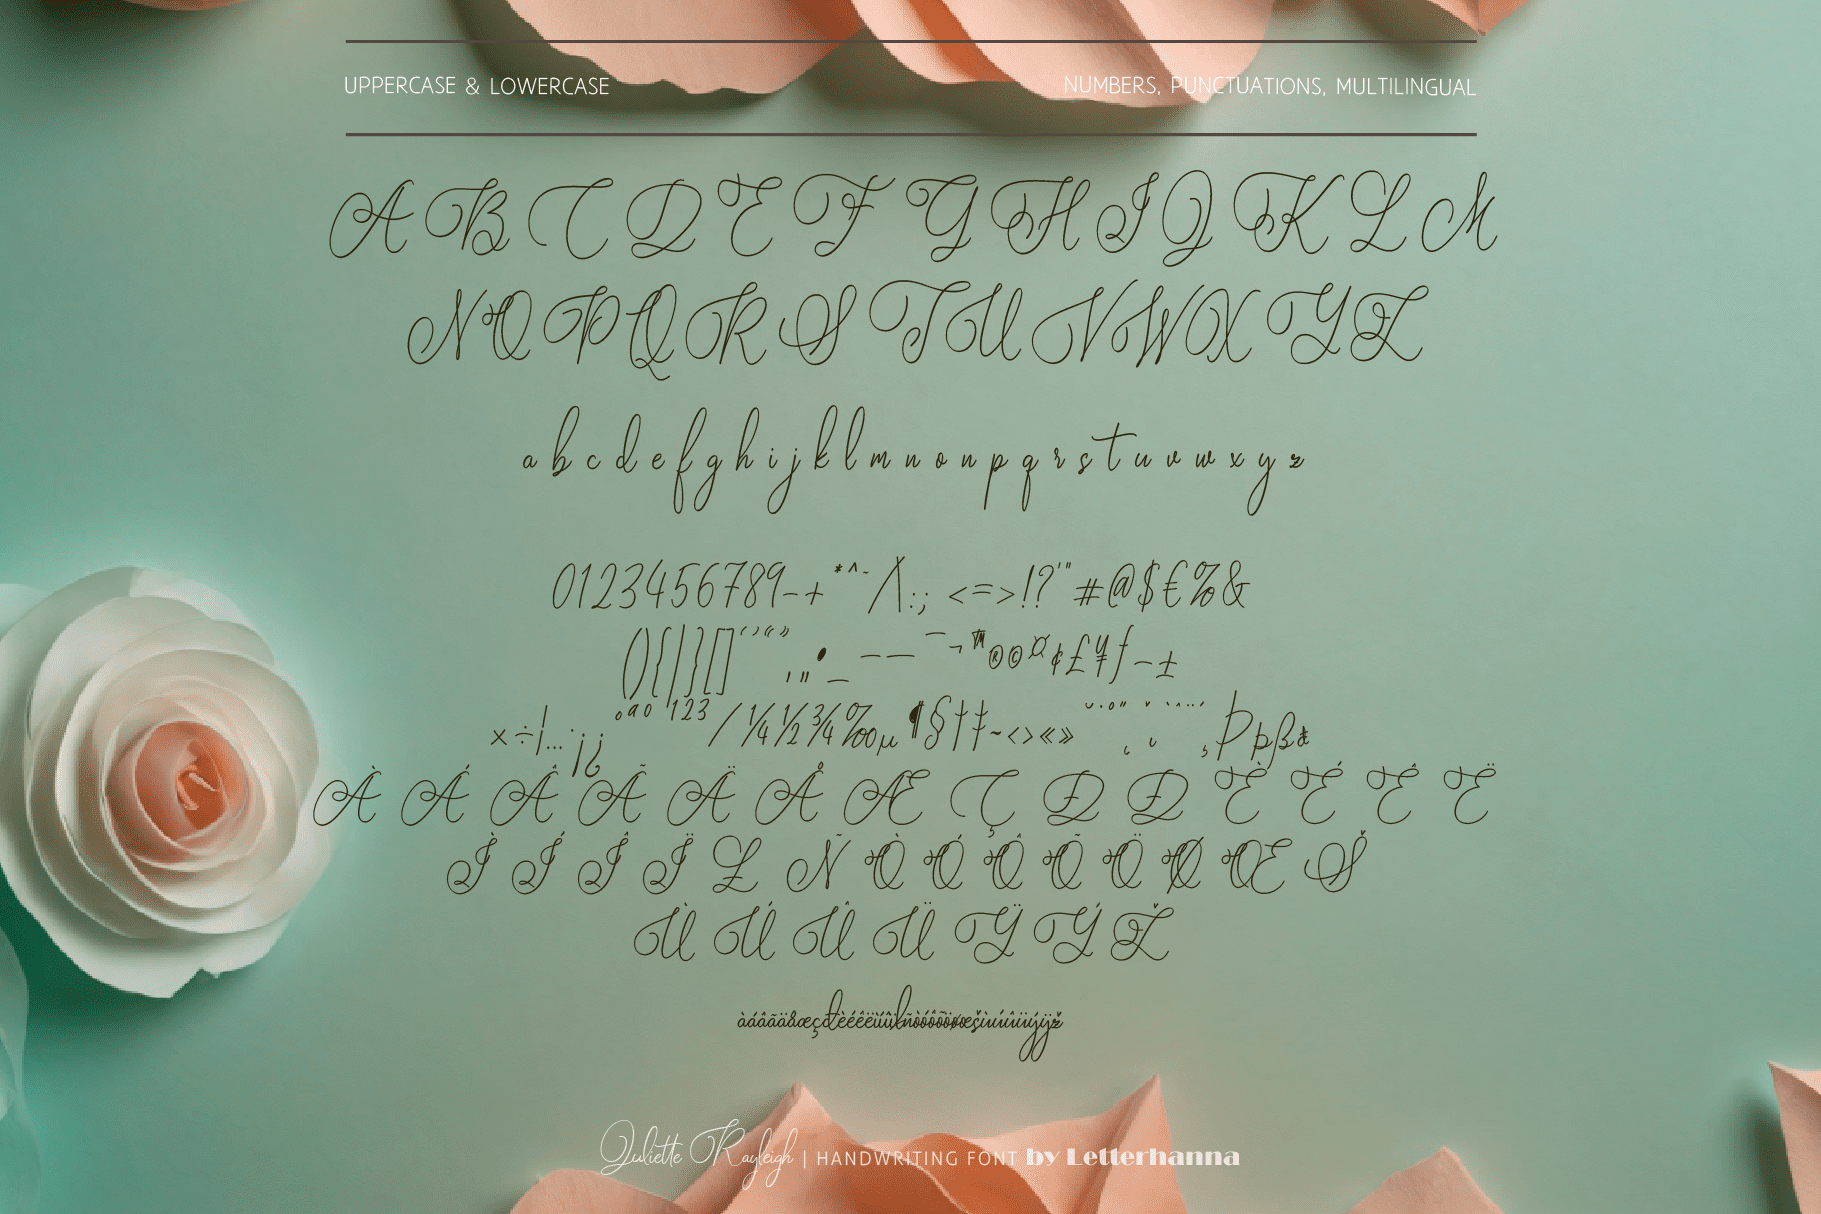 UPPERCASE & LOWERCASE
NUMBERS, PUNCTUATIONS, MULTILINGUAL
A B C D E F G H I J K L M
N O P Q R S T U V W X Y Z
a b c d e f g h i j k l m n o n p q r s t u v w x y z
0123456789-+*^~/\.:; <=>!?'"#@$€%&
(){|}[]‘’“”‚„•_–—¯¬™®©¤¢£¥ƒ−±
×÷¦…·¡¿ °ªº ¹²³ ⁄¼½¾‰µ¶§†‡~‹›«» Þþß
À Á Â Ã Ä Å Æ Ç Ð Đ È É Ê Ë
Ì Í Î Ï Ł Ñ Ò Ó Ô Õ Ö Ø Œ Š
Ù Ú Û Ü Ÿ Ý Ž
Juliette Rayleigh | HANDWRITING FONT by Letterhanna